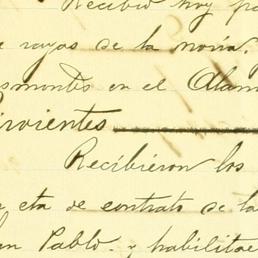 Recibió hoy
e rayas de la noria.
smontes en el Alam
irvientes
Recibieron los
r cta de contrato de la
n Pablo. y habilitac